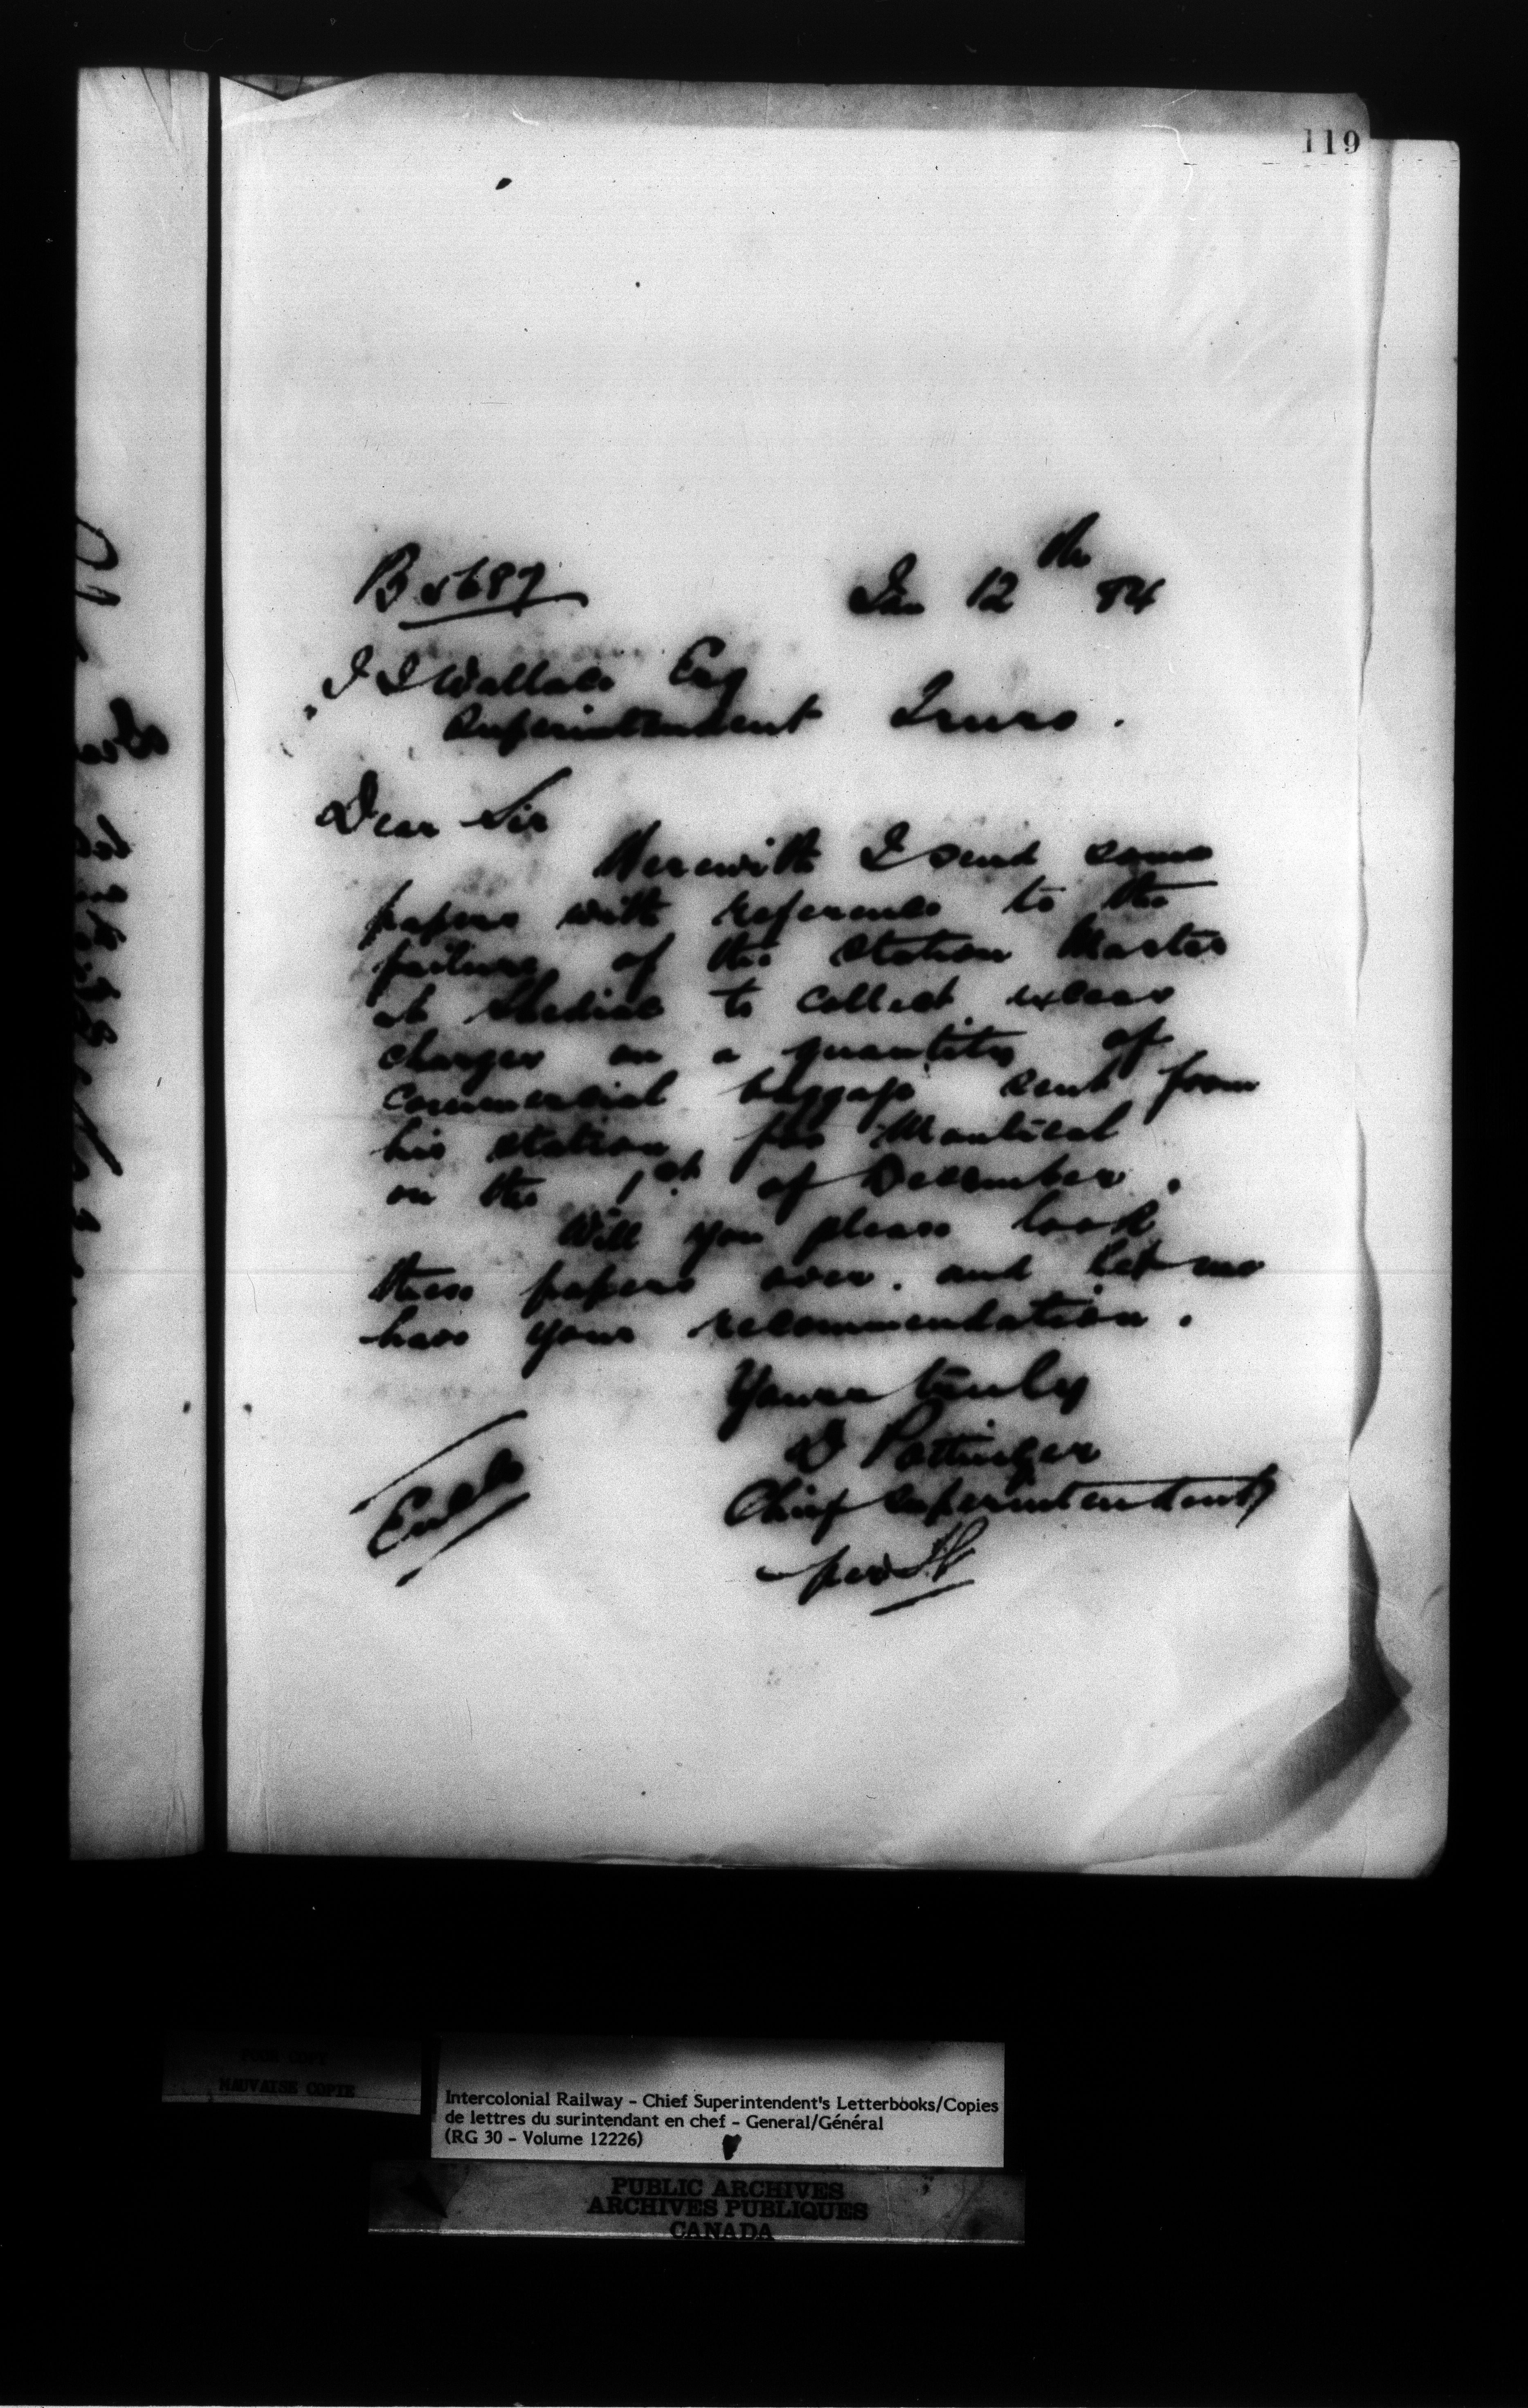 119
B 5687
Jan 12th 84
J J Wallace Esq
Superintendent Truro.
Dear Sir
Herewith I send some
papers with reference to the
failure of the Station Master
at Shediac to collect excess
charges on a quantity of
commercial baggage sent from
his station for Montreal
on the 1st of December.
Will you please look
these papers over. and let me
have your recommendation.
Yours truly
D Pottinger
Chief Superintendent
per H
Encls
POOR COPY
MAUVAISE COPIE
Intercolonial Railway - Chief Superintendent's Letterbooks/Copies
de lettres du surintendant en chef - General/Général
(RG 30 - Volume 12226)
PUBLIC ARCHIVES
ARCHIVES PUBLIQUES
CANADA